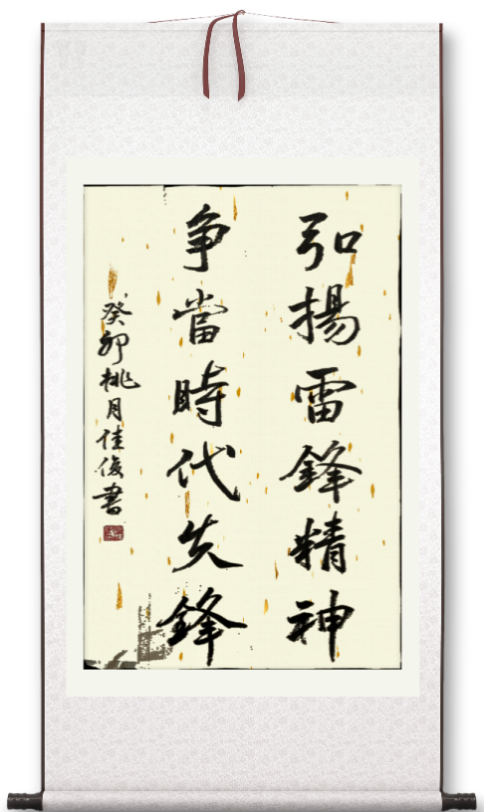 弘揚雷鋒精神
争當時代先鋒
癸卯桃月佳俊書